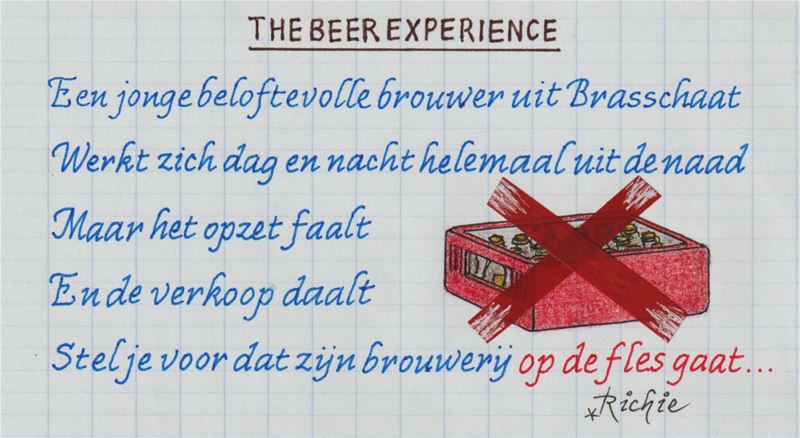 THE BEER EXPERIENCE
Een jonge beloftevolle brouwer uit Brasschaat
Werkt zich dag en nacht helemaal uit de naad
Maar het opzet faalt
En de verkoop daalt
Stel je voor dat zijn brouwerij op de fles gaat...
*Richie